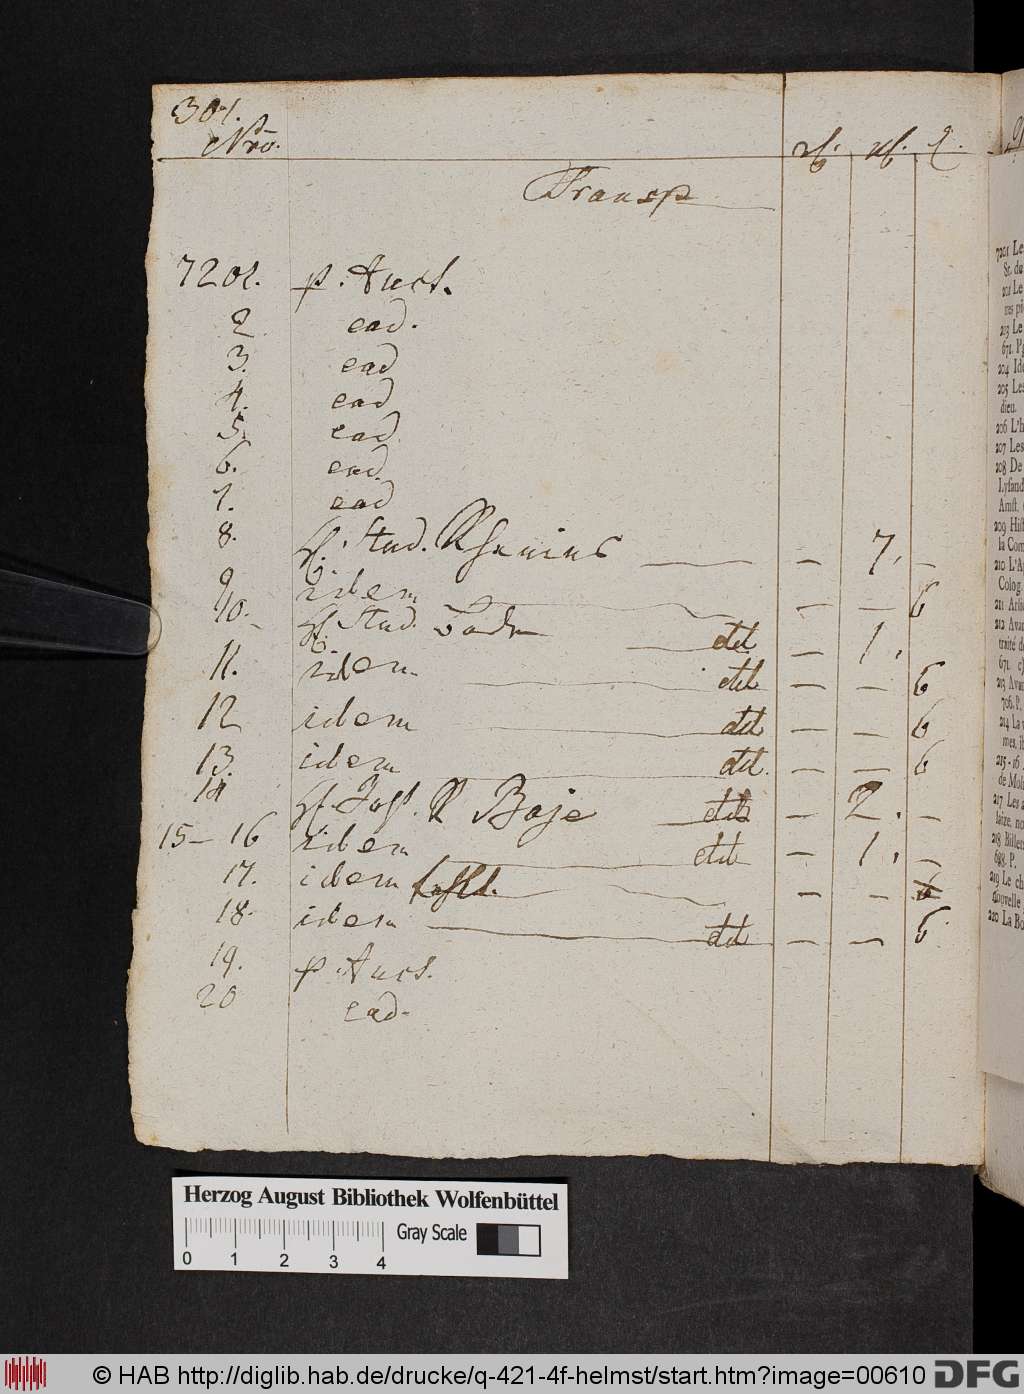 301.
Nro.
Transp
7201. p. Auct.
2 ead.
3. ead
4. ead
5. ead
6. ead.
7. ead
8. H. Stud. — 7. —
9. idem — — 6
10. H. Stud. dt — 1.
11. idem dt — — 6
12 idem dt — — 6
13. idem dt. — — 6
14 H. R Boje dt — 2. —
15 – 16 idem dt — 1. —
17. idem — — 6
18. idem dt — — 6
19. p. Auct.
20 ead.
7201 Le
Sr. du
202 Le
203 Le
671. P
204 Id
205 Les
dieu.
206 L'H
207 Les
208 De
Lysand
Amst.
209 Hist
la Com
210 L'A
Colog
211 Arl
212 Avan
traité d
671.
213 Avan
706. P.
214 La
mes.
215-16
de Mol
217 Les
laire, no
218 Biller
698. P.
219 Le ch
nouvelle
220 La Bo
Herzog August Bibliothek Wolfenbüttel
Gray Scale
0 1 2 3 4
© HAB http://diglib.hab.de/drucke/q-421-4f-helmst/start.htm?image=00610
DFG